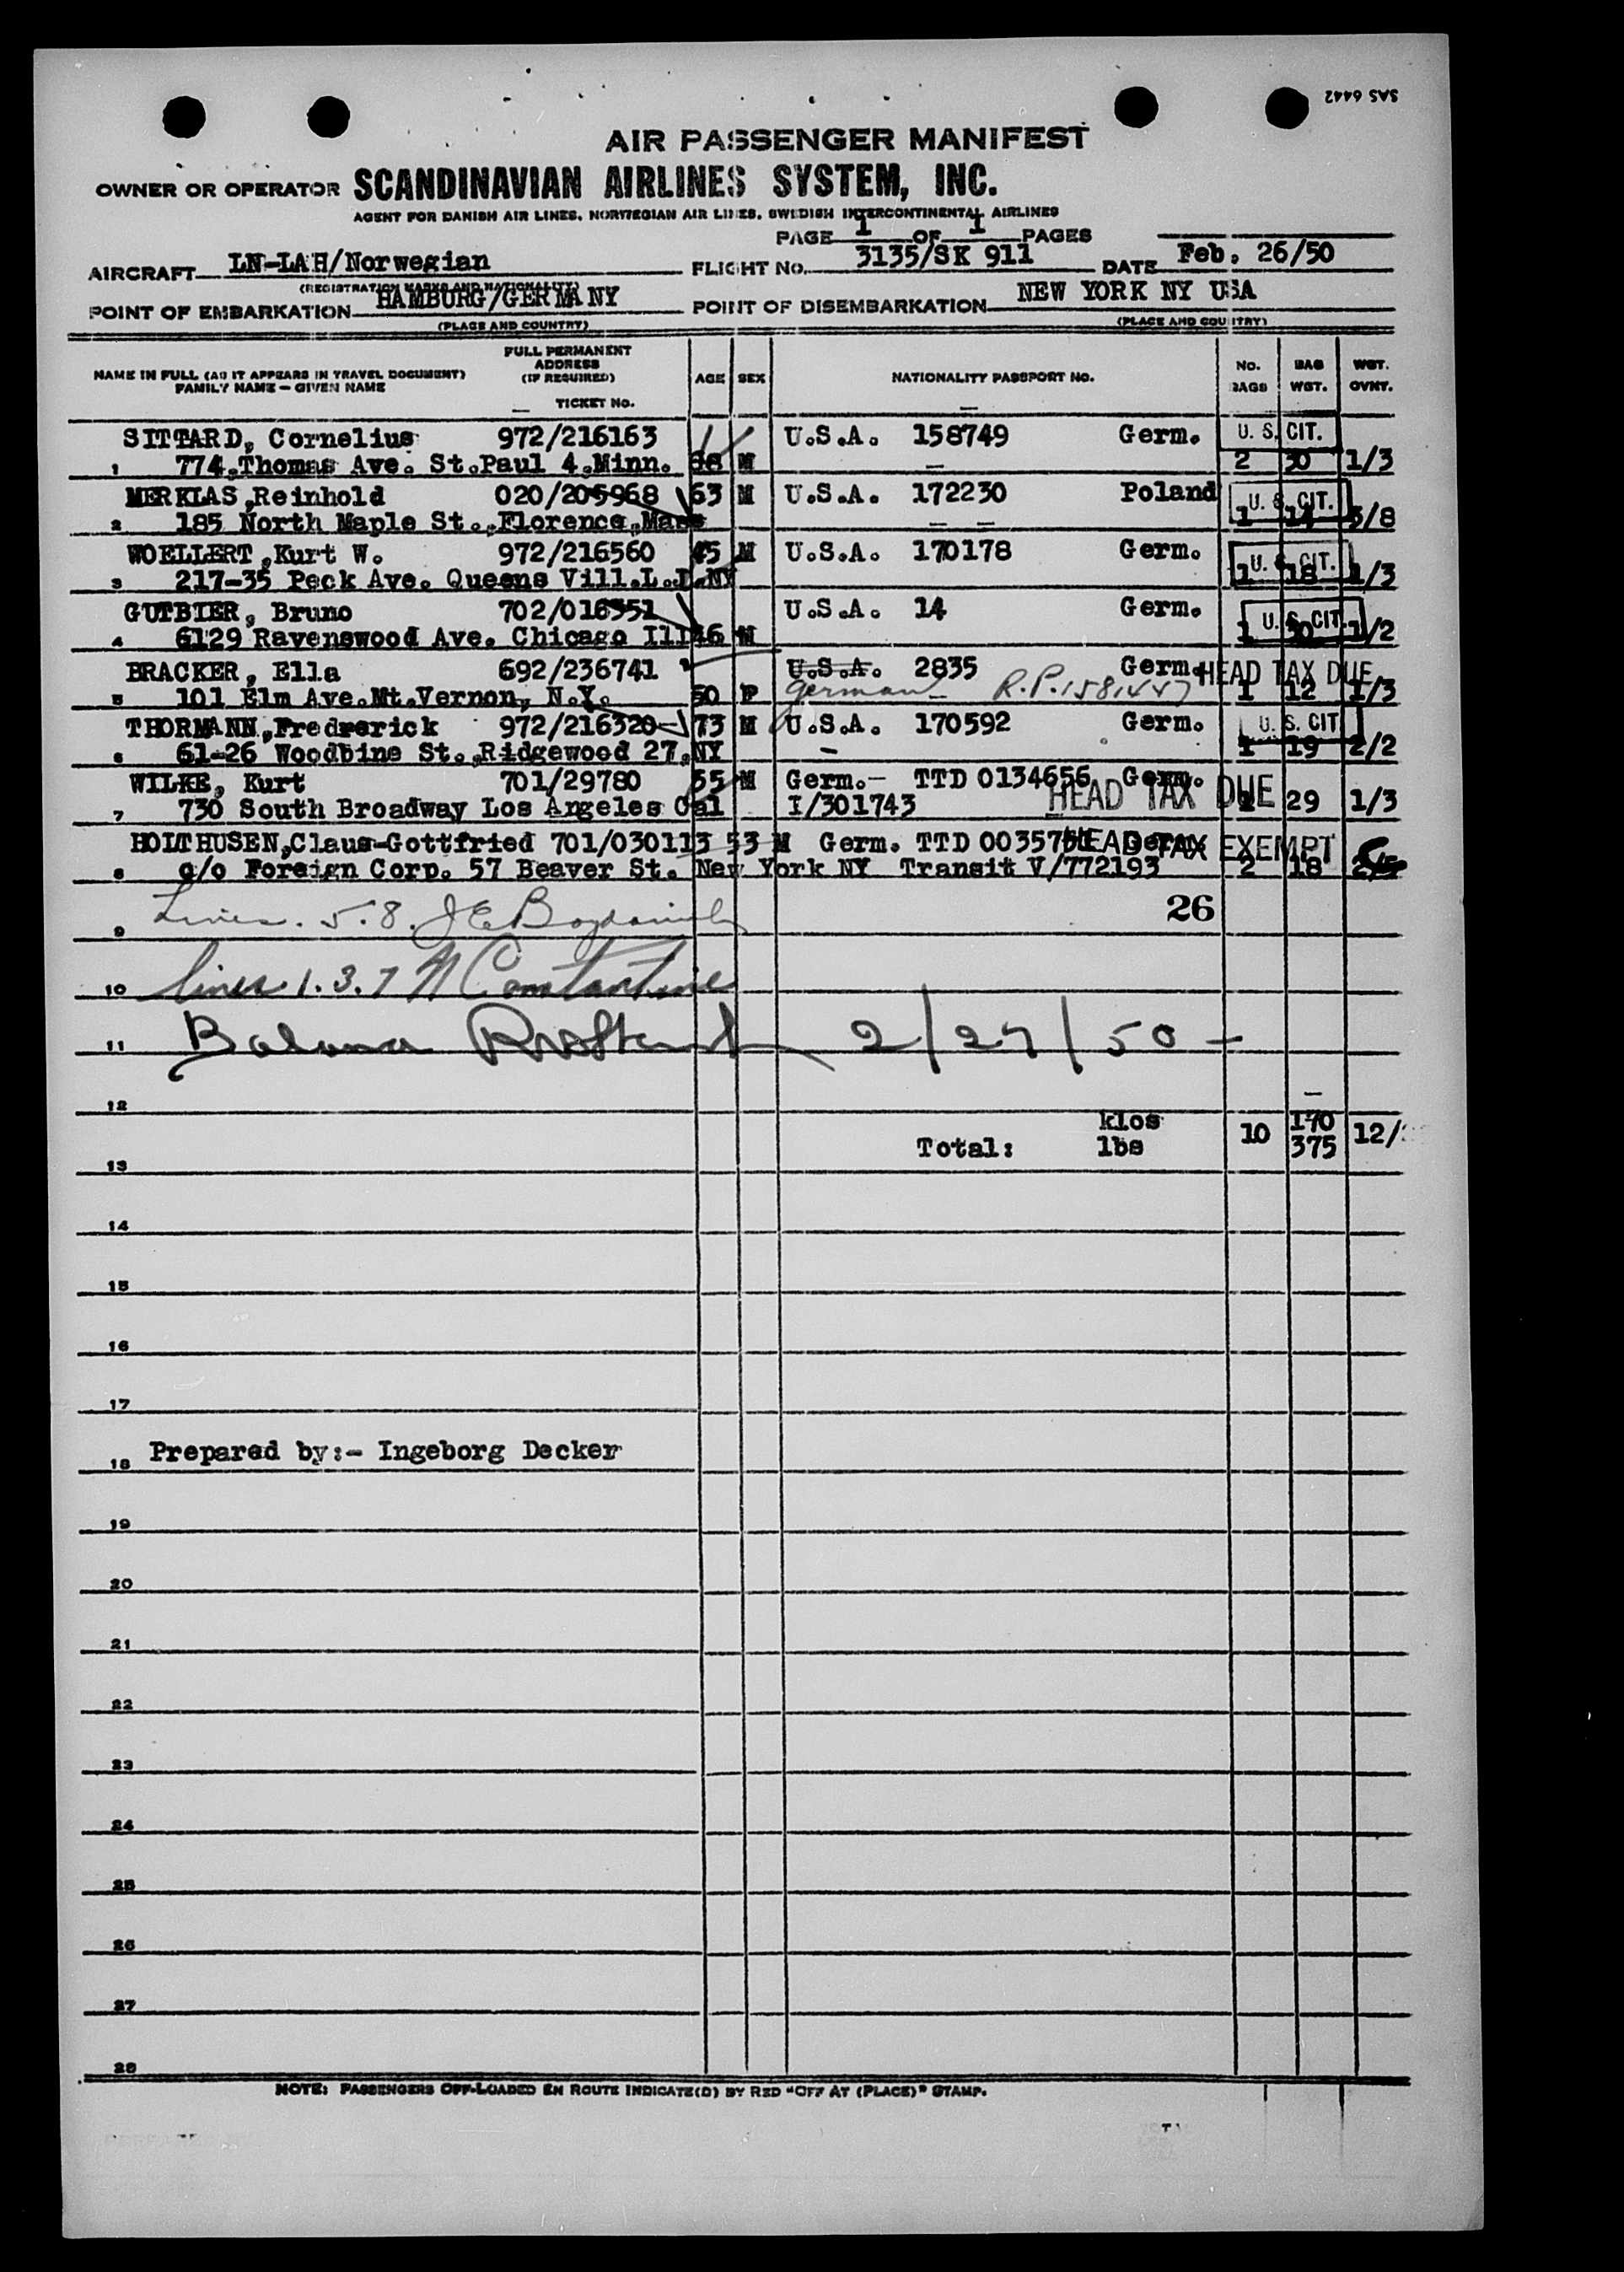 SAS 6442
AIR PASSENGER MANIFEST
OWNER OR OPERATOR SCANDINAVIAN AIRLINES SYSTEM, INC.
AGENT FOR DANISH AIR LINES, NORWEGIAN AIR LINES, SWEDISH INTERCONTINENTAL AIRLINES
PAGE 1 OF 1 PAGES
AIRCRAFT LN-LAH/Norwegian FLIGHT No. 3135/SK 911 DATE Feb. 26/50
(REGISTRATION MARKS AND NATIONALITY)
POINT OF EMBARKATION HAMBURG/GERMANY POINT OF DISEMBARKATION NEW YORK NY USA
(PLACE AND COUNTRY) (PLACE AND COUNTRY)
NAME IN FULL (AS IT APPEARS IN TRAVEL DOCUMENT) FAMILY NAME – GIVEN NAME FULL PERMANENT ADDRESS (IF REQUIRED) TICKET NO. AGE SEX NATIONALITY PASSPORT NO. NO. BAGS BAG WGT. WGT. OVNT.
SITTARD, Cornelius 972/216163 U.S.A. 158749 Germ. U. S. CIT.
1 774.Thomas Ave. St.Paul 4.Minn. M 2 30 1/3
MERKLAS,Reinhold 020/205968 63 M U.S.A. 172230 Poland U. S. CIT.
2 185 North Maple St.,Florence,Mass 1 14 3/8
WOELLERT,Kurt W. 972/216560 45 M U.S.A. 170178 Germ. U. S. CIT.
3 217-35 Peck Ave. Queens Vill.L.I.NY 1 18 1/3
GUTBIER, Bruno 702/016351 U.S.A. 14 Germ. U. S. CIT
4 6129 Ravenswood Ave. Chicago Ill 46 M 1 30 1/2
BRACKER, Ella 692/236741 U.S.A. 2835 Germ. HEAD TAX DUE
5 101 Elm Ave.Mt.Vernon, N.Y. 50 F german R.P.1581447 1 12 1/3
THORMANN,Fredrerick 972/216320 73 M U.S.A. 170592 Germ. U. S. CIT
6 61-26 Woodbine St.,Ridgewood 27.NY 1 19 2/2
WILKE, Kurt 701/29780 55 M Germ.- TTD 0134656 Germ.
7 730 South Broadway Los Angeles Cal I/301743 HEAD TAX DUE 1 29 1/3
HOLTHUSEN,Claus-Gottfried 701/030113 53 M Germ. TTD Germ. HEAD TAX EXEMPT
8 c/o Foreign Corp. 57 Beaver St. New York NY Transit V/772193 2 18
9 Lines. 5.8. J E 26
10 lines 1. 3. 7 N Constantine
11 2/27/50 -
12
klos 170
Total: lbs 10 375 12/
13
14
15
16
17
18 Prepared by:- Ingeborg Decker
19
20
21
22
23
24
25
26
27
28
NOTE: PASSENGERS OFF-LOADED EN ROUTE INDICATE(D) BY RED "OFF AT (PLACE)" STAMP.